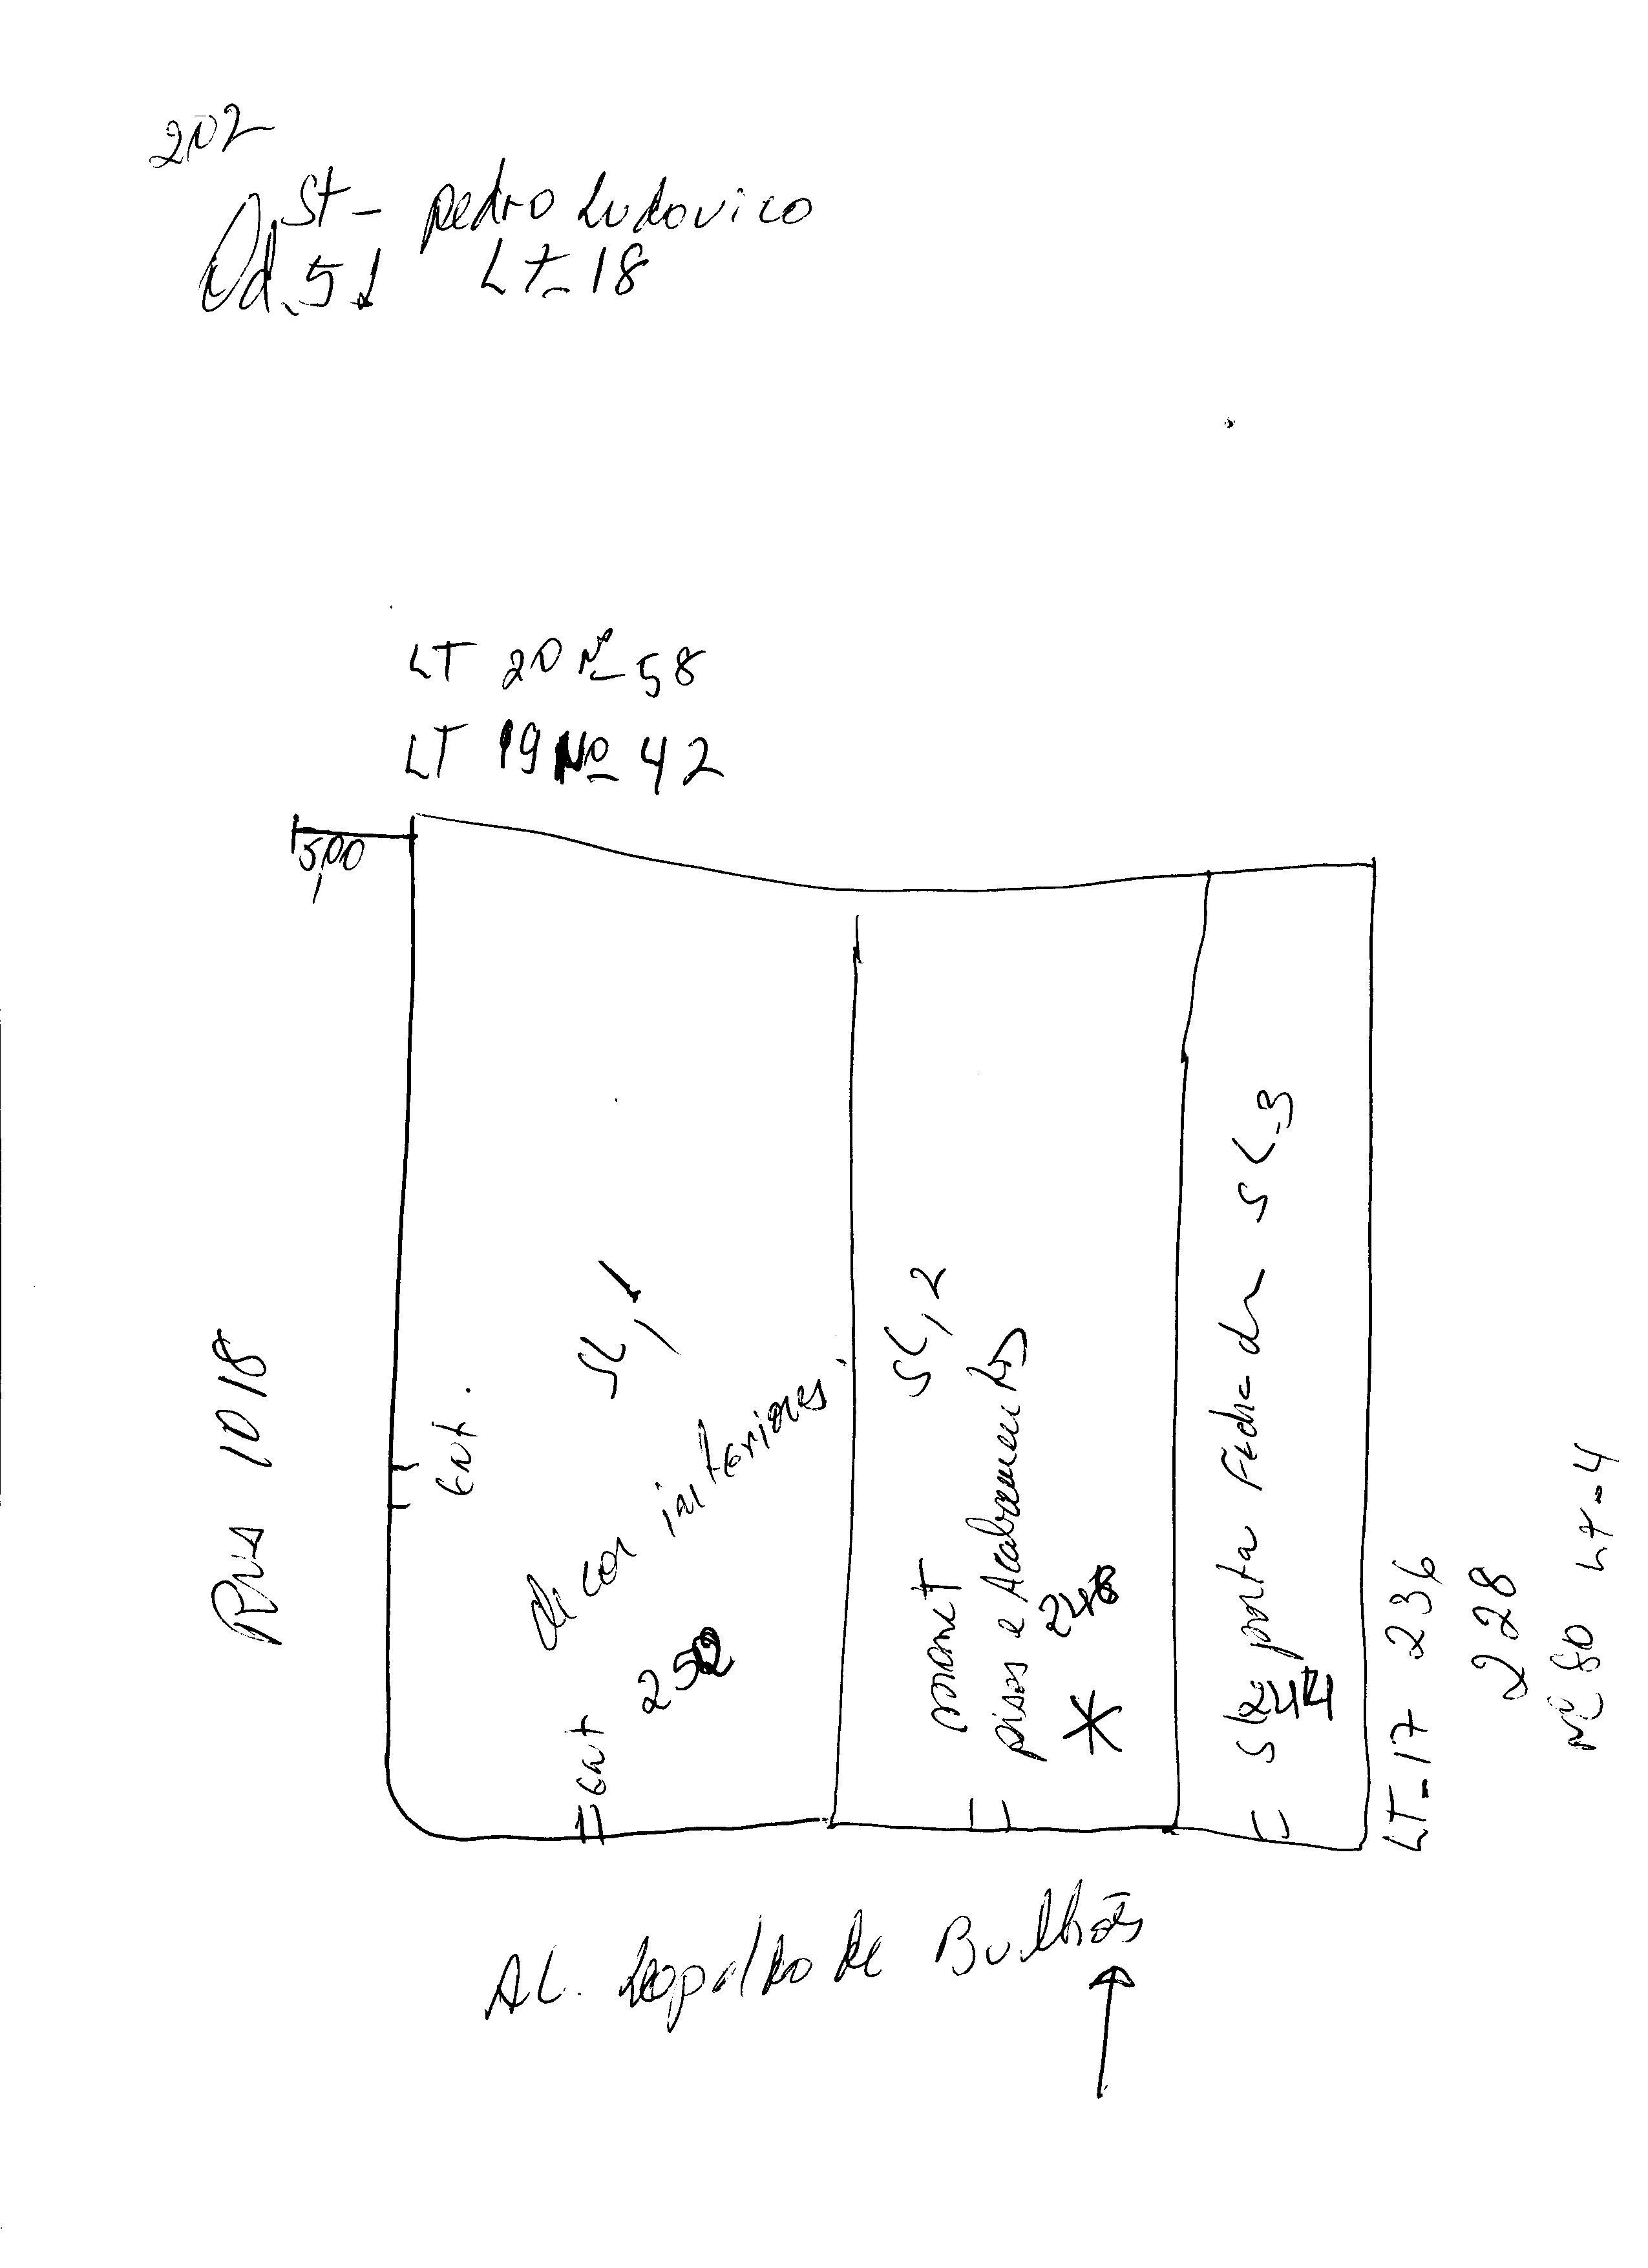 202
St - pedro Ludovico
Qd. 51 Lt - 18
LT 20 Nº 58
LT 19 Nº 42
5,00
Rua 1018
Ent.
SL, 1
decor interiores
252
Ent
SL, 2
monct
pisos e Acabamentos
248
SL, 3
porta Fechada
244
LT - 17 236
228
Nº 80 LT - 4
AL. Leopoldo de Bulhões